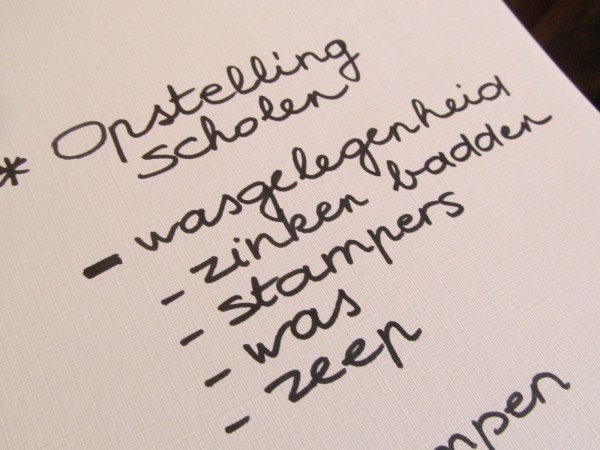 * Opstelling
scholen
- wasgelegenheid
- zinken badden
- stampers
- was
- zeep